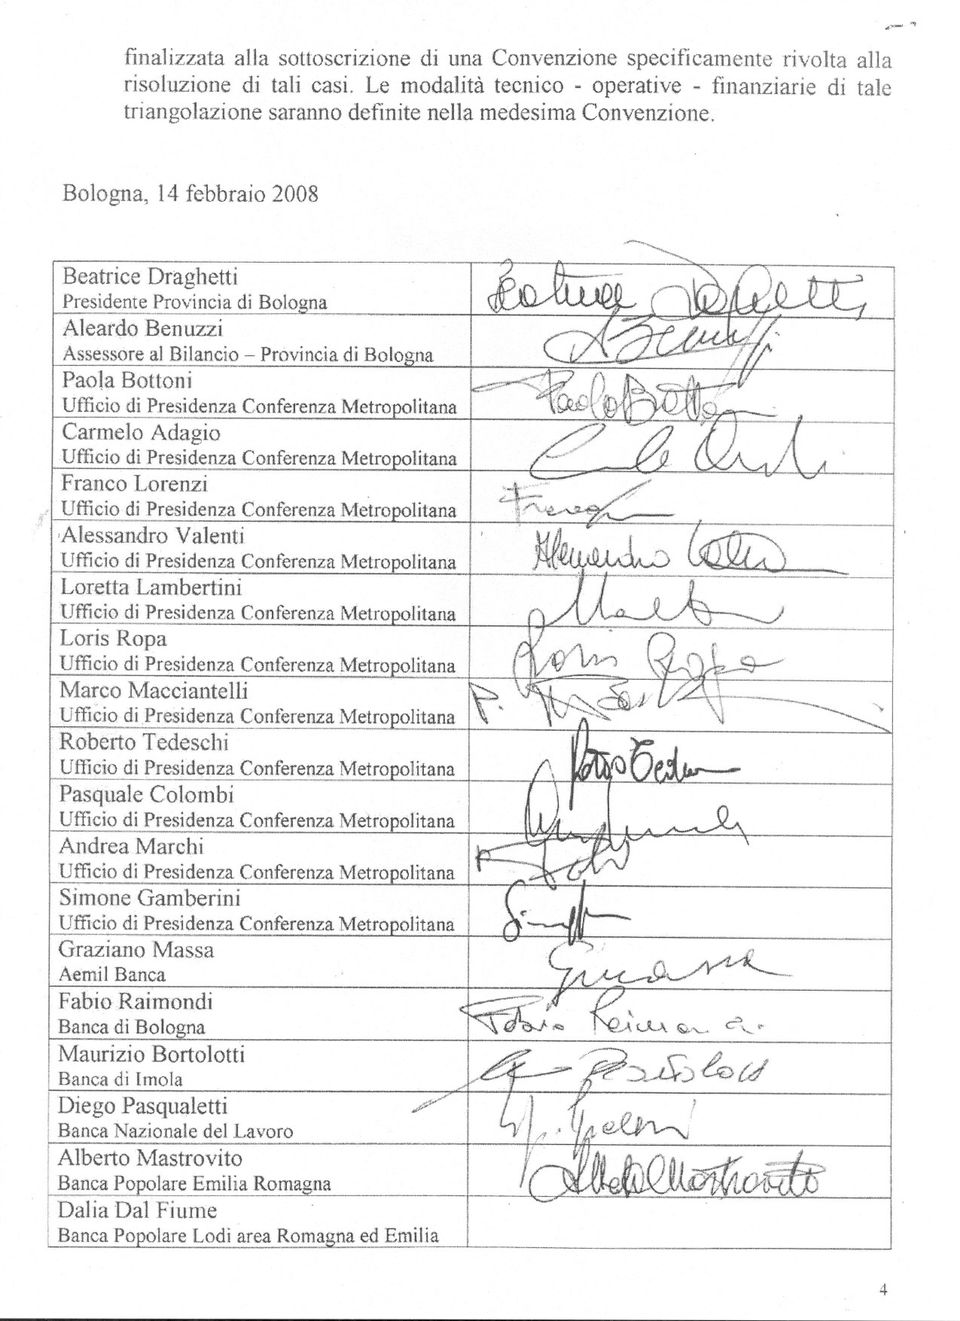 finalizzata alla sottoscrizione di una Convenzione specificamente rivolta alla
risoluzione di tali casi. Le modalità tecnico - operative - finanziarie di tale
triangolazione saranno definite nella medesima Convenzione.
Bologna, 14 febbraio 2008
Beatrice Draghetti
Presidente Provincia di Bologna
Aleardo Benuzzi
Assessore al Bilancio – Provincia di Bologna
Paola Bottoni
Ufficio di Presidenza Conferenza Metropolitana
Carmelo Adagio
Ufficio di Presidenza Conferenza Metropolitana
Franco Lorenzi
Ufficio di Presidenza Conferenza Metropolitana
Alessandro Valenti
Ufficio di Presidenza Conferenza Metropolitana
Loretta Lambertini
Ufficio di Presidenza Conferenza Metropolitana
Loris Ropa
Ufficio di Presidenza Conferenza Metropolitana
Loris Ropa
Marco Macciantelli
Ufficio di Presidenza Conferenza Metropolitana
Roberto Tedeschi
Ufficio di Presidenza Conferenza Metropolitana
Pasquale Colombi
Ufficio di Presidenza Conferenza Metropolitana
Andrea Marchi
Ufficio di Presidenza Conferenza Metropolitana
Simone Gamberini
Ufficio di Presidenza Conferenza Metropolitana
Graziano Massa
Aemil Banca
Fabio Raimondi
Banca di Bologna
Maurizio Bortolotti
Banca di Imola
Diego Pasqualetti
Banca Nazionale del Lavoro
Alberto Mastrovito
Banca Popolare Emilia Romagna
Alberto Mastrovito
Dalia Dal Fiume
Banca Popolare Lodi area Romagna ed Emilia
4